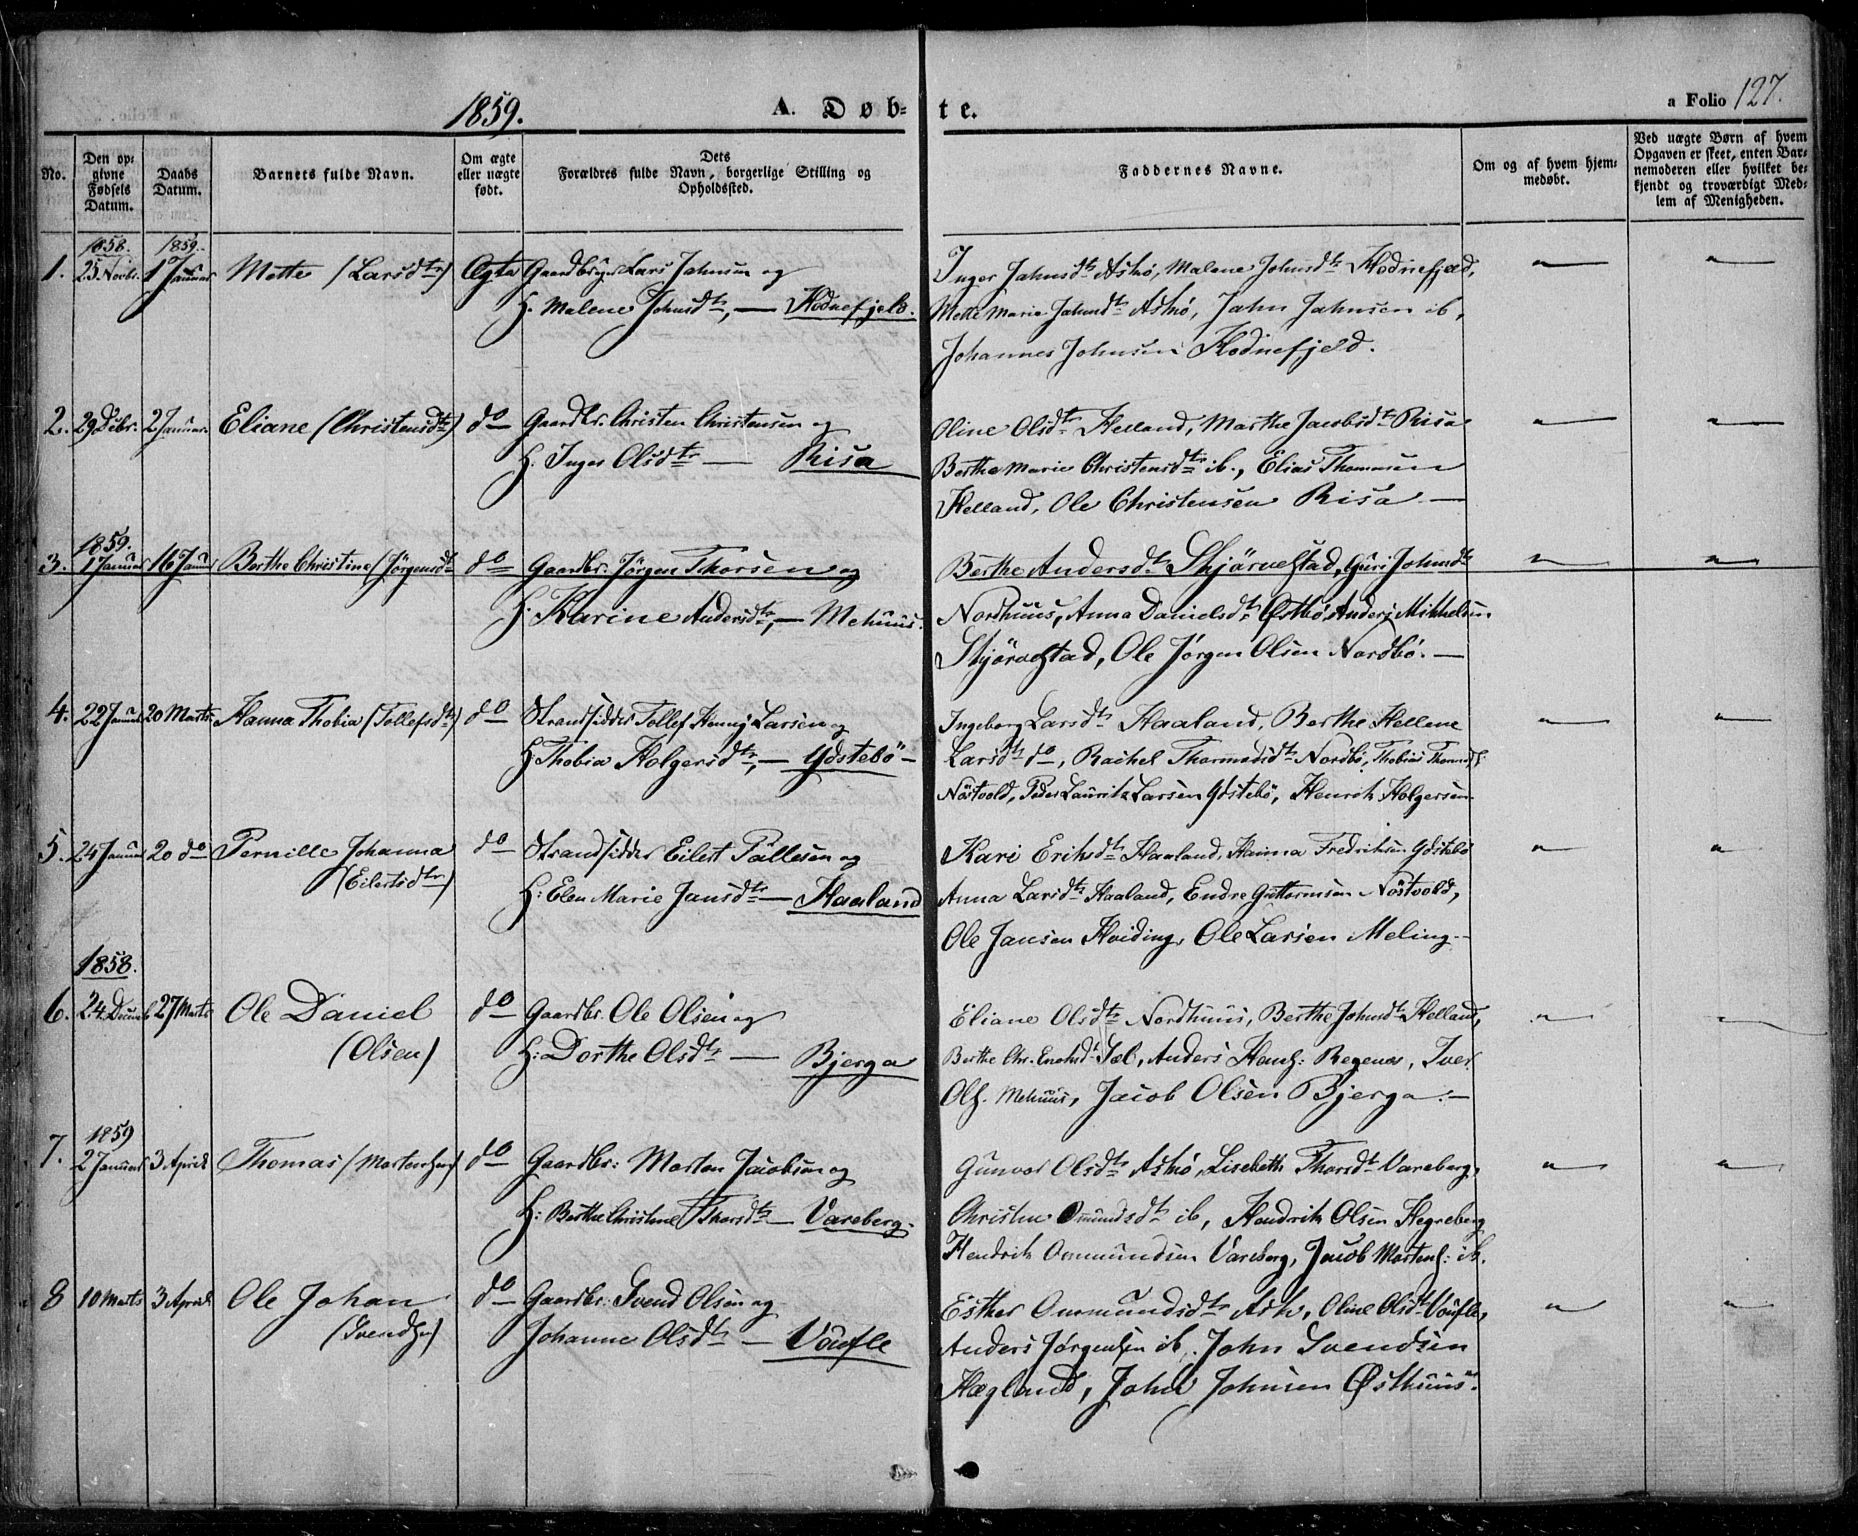 1859. A. Døb= te. a Folio 127.
No.
Den op=
givne
Fødsels
Datum.
Daabs
Datum.
Barnets fulde Navn.
Om ægte
eller uægte
født.
Dets
Forældres fulde Navn, borgerlige Stilling og
Opholdssted.
Faddernes Navne.
Om og af hvem hjem=
medøbt.
Ved uægte Børn af hvem
Opgaven er skeet, enten Bar=
nemoderen eller hvilket be=
kjendt og troværdigt Med=
lem af Menigheden.
1858. 1859.
1. 25 Novbr. 1 Januar Mette (Larsdtr) Ægte Gaardbruger Lars Johnsen og
H. Malene Johnsdtr, — Hodnefjeld.
Inger Johnsdtr Askø, Malene Johnsdtr Hodnefjeld,
Mette Marie Johnsdtr Askø, John Johnsen ib,
Johannes Johnsen Hodnefjeld.
2. 29 Debr. 2 Januar. Eliane (Christensdtr) do Gaardbr. Christen Christensen og
H. Inger Olsdtr — Risa
Oline Olsdtr Helland, Marthe Jacobsdtr Risa
Berthe Marie Christensdtr ib., Elias Thomasen
Helland, Ole Christensen Risa —
1859.
3. 1 Januar 16 Janu Berthe Christine (Jørgensdtr do Gaardbr. Jørgen Thorsen og
H. Karine Andersdtr, — Mehuus.
Berthe Andersdtr Skjørvestad, Guri Johnsdtr
Nordhuus, Anna Danielsdtr Østbø, Anders Mikkelsen
Skjørvestad, Ole Jørgen Olsen Nordbø. —
4. 22 Januar 20 Marts Hanna Thobia (Tollefsdtr) do Strandsidder Tollef Larsen og
H. Thobia Holgersdtr, — Ydstebö —
Ingeborg Larsdtr Haaland, Berthe Hellene
Larsdtr do, Rachel Thormodsdtr Nordbø, Thobias
Nöstvold, Peder Lauritz Larsen Ydstebö, Henrik Holgersen
5. 24 Januar 20 do Pernille Johanna
(Eilertsdtr)
do Strandsidder Eilert Pallesen og
H: Elen Marie Jansdtr — Haaland
Kari Eriksdtr Haaland, Hanna Fredriksen Ydstebö
Anna Larsdtr Haaland, Endre Guttormsen Nöstvold,
Ole Jansen Hviding, Ole Larsen Meling —
1858.
6. 24. Decemb 27 Marts Ole Daniel
(Olsen)
do Gaardbr. Ole Olsen og
H: Dorthe Olsdtr — Bjerga
Eliane Olsdtr Nordhuus, Berthe Johnsdtr Helland,
Berthe Chr. Sæl, Anders Hans: Regenes, Iver
Ols. Mehuus, Jacob Olsen Bjerga. —
1859
7. 2 Januar 3 April Thomas (Mortensen) do Gaardbr: Morten Jacobsen og
H: Berthe Christine Thorsdtr — Vareberg.
Gunvor Olsdtr Askø, Lisebeth Thorsdtr Vareberg,
Christen Omundsdtr ib, Hendrik Olsen Hegreberg
Hendrik Ommundsen Vareberg, Jacob Mortens: ib.
8 10 Marts 3 April Ole Johan
(Svendsen)
do Gaardbr. Svend Olsen og
Johanne Olsdtr — Voufle
Esther Ommundsdtr Ask, Oline Olsdtr Voufle,
Anders Jørgensen ib, John Svendsen
Hægland, John Johnsen Østhuus.